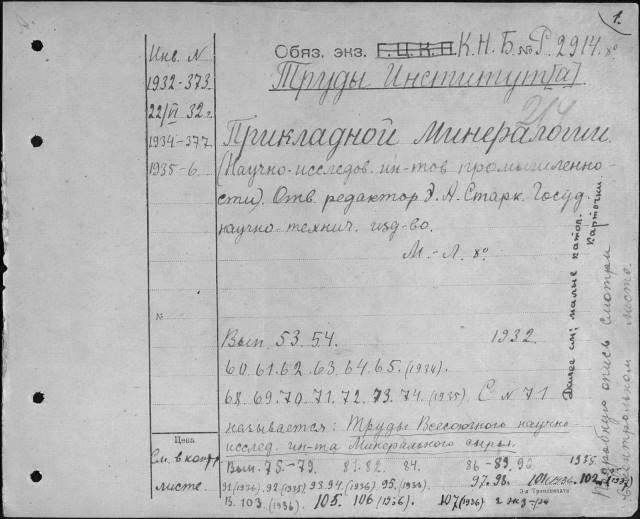 1.
Инв. N
1932-373.
22/VI 32 г.
1934-377
1935-6.
Обяз. экз. Г.Ц.К.П. К.Н.Б. № Р. 2914. 8°
Труды Институт[а]
214
Прикладной Минералогии.
(Научно-исследов. ин-тов промышленно-
сти). Отв. редактор Д. А. Старк. Госуд.
научно-технич. изд-во.
М.-Л. 8°
№
Вып. 53.54. 1932.
60.61.62.63.64.65. (1934).
68.69.70.71.72.73.74. (1935) С N 71
называется: Труды Всесоюзного научно
исслед. ин-та Минерального сырья.
Вып. 75.-79. 81.82. 84. 86-89. 90 1935
91 (1936). 92 (1935). 93.94 (1936). 95. (1935). 97.98. 101 (1936. 102
103 (1936). 105. 106 (1936). 107 (1936) 2 экз-ра
Цена
См. в конфр.
листе.
Далее им; малые катол.
карточки.
Подробную опись смотри
в контрольном листе.